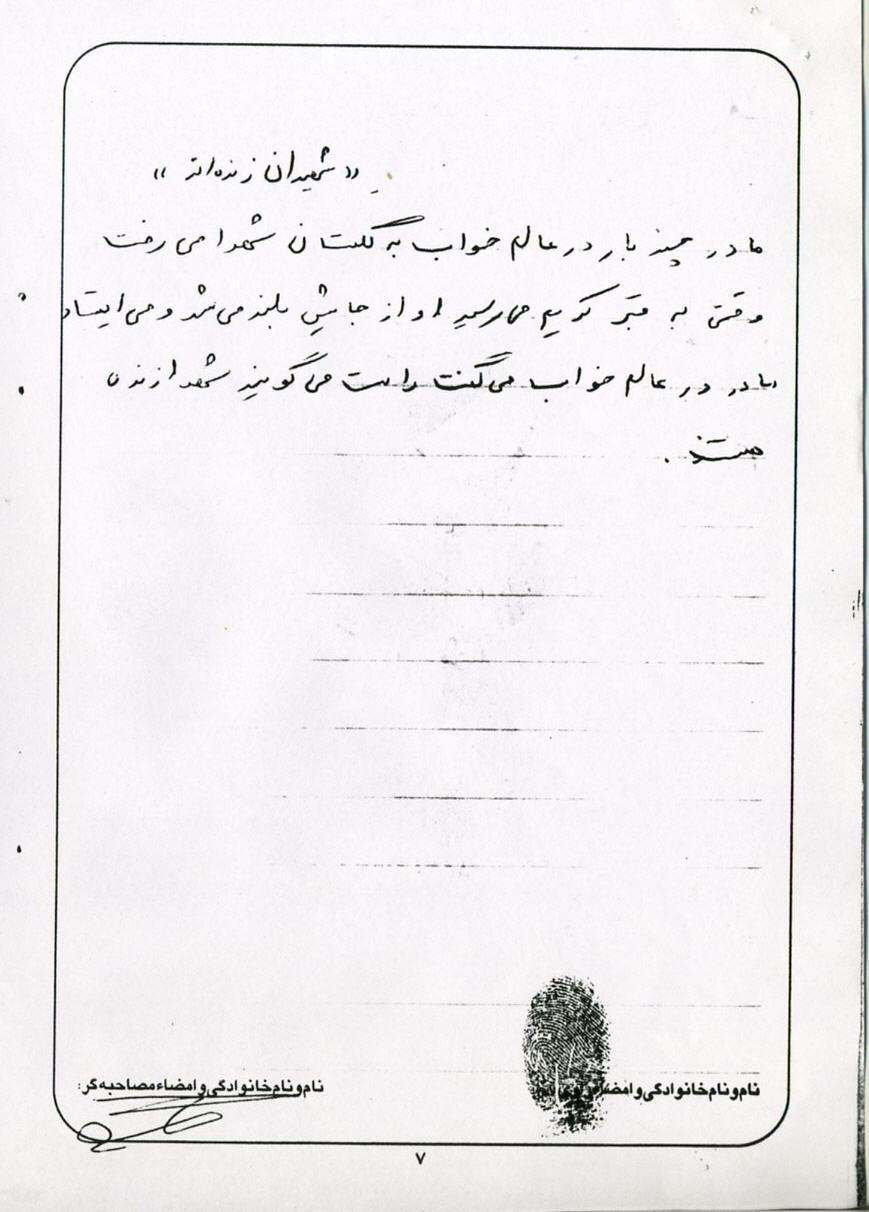 «شهیدان زنده‌اند»
مادر چند بار در عالم خواب به گلستان شهدا می رفت
وقتی به قبر کریم می رسید او از جایش بلند می شد و می ایستاد
مادر در عالم خواب می گفت راست می گویند شهدا زنده
هستند.
نام و نام خانوادگی و امضاء
نام و نام خانوادگی و امضاء مصاحبه گر:
۷